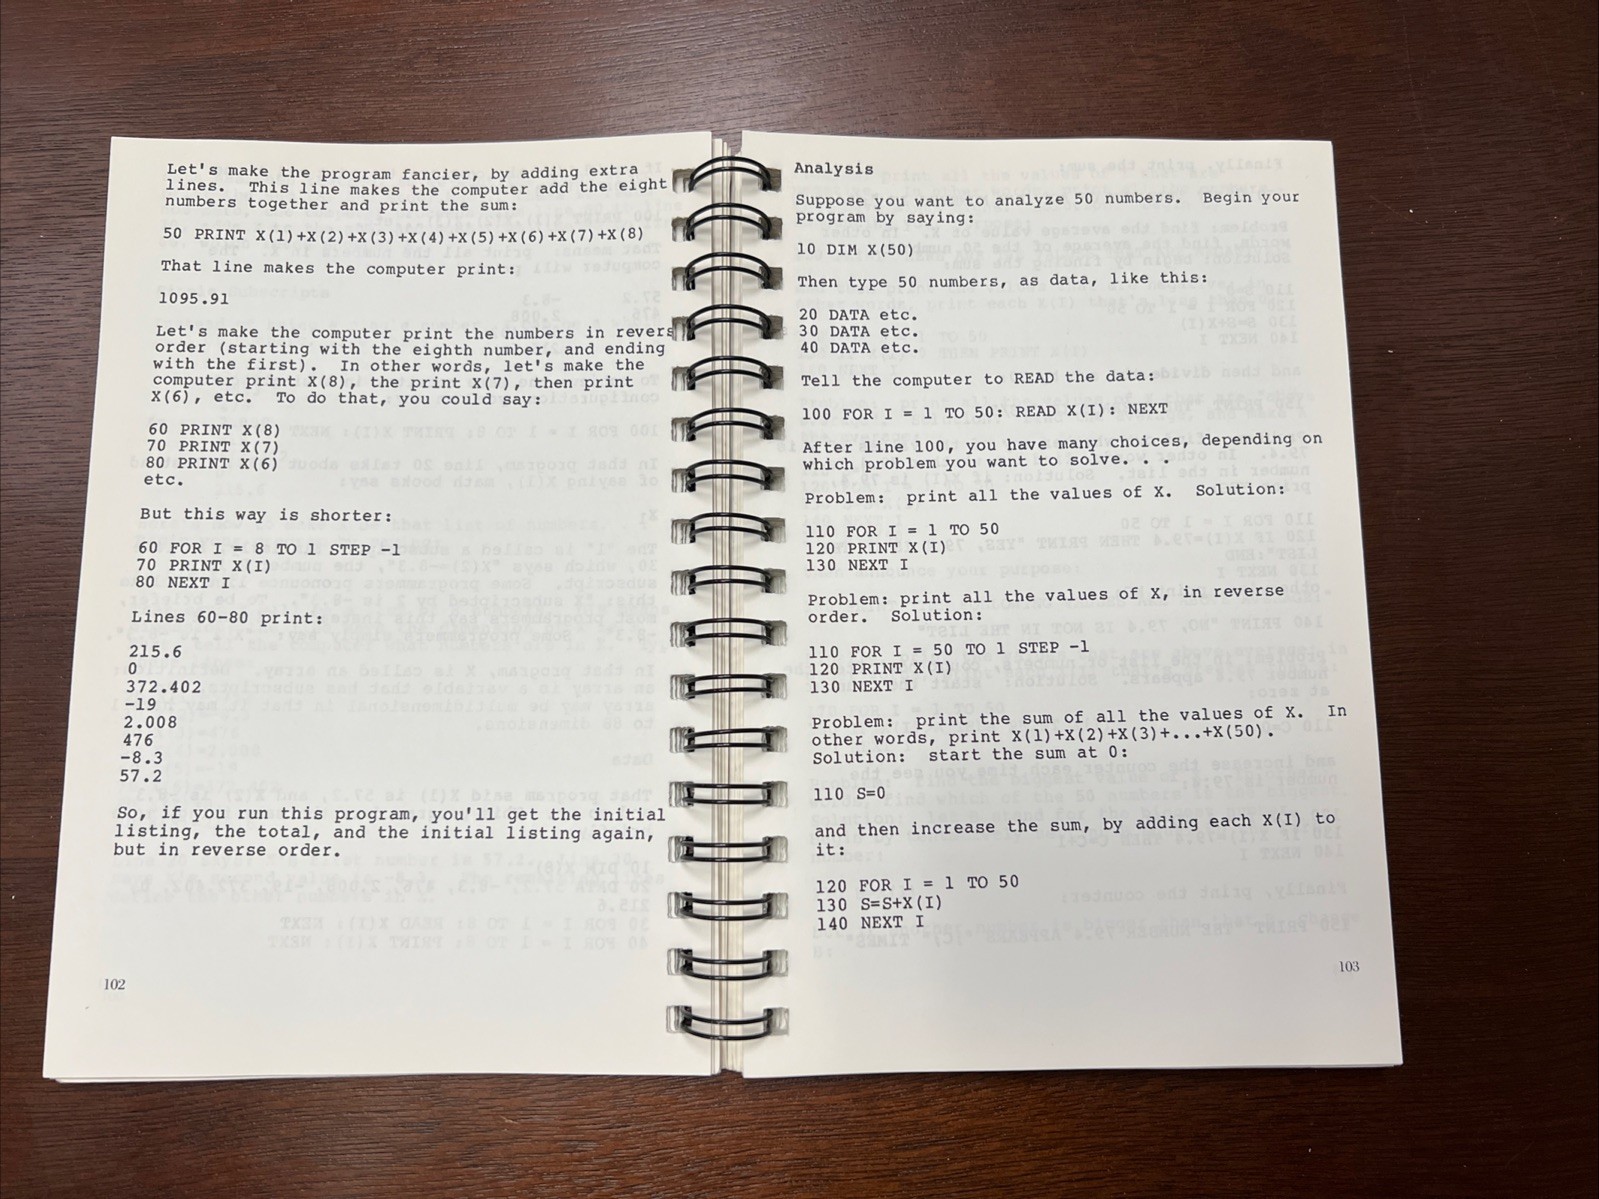 Let's make the program fancier, by adding extra
lines. This line makes the computer add the eight
numbers together and print the sum:
50 PRINT X(1)+X(2)+X(3)+X(4)+X(5)+X(6)+X(7)+X(8)
That line makes the computer print:
1095.91
Let's make the computer print the numbers in revers
order (starting with the eighth number, and ending
with the first). In other words, let's make the
computer print X(8), the print X(7), then print
X(6), etc. To do that, you could say:
60 PRINT X(8)
70 PRINT X(7)
80 PRINT X(6)
etc.
But this way is shorter:
60 FOR I = 8 TO 1 STEP -1
70 PRINT X(I)
80 NEXT I
Lines 60-80 print:
215.6
0
372.402
-19
2.008
476
-8.3
57.2
So, if you run this program, you'll get the initial
listing, the total, and the initial listing again,
but in reverse order.
102
Analysis
Suppose you want to analyze 50 numbers. Begin your
program by saying:
10 DIM X(50)
Then type 50 numbers, as data, like this:
20 DATA etc.
30 DATA etc.
40 DATA etc.
Tell the computer to READ the data:
100 FOR I = 1 TO 50: READ X(I): NEXT
After line 100, you have many choices, depending on
which problem you want to solve. . .
Problem: print all the values of X. Solution:
110 FOR I = 1 TO 50
120 PRINT X(I)
130 NEXT I
Problem: print all the values of X, in reverse
order. Solution:
110 FOR I = 50 TO 1 STEP -1
120 PRINT X(I)
130 NEXT I
Problem: print the sum of all the values of X. In
other words, print X(1)+X(2)+X(3)+...+X(50).
Solution: start the sum at 0:
110 S=0
and then increase the sum, by adding each X(I) to
it:
120 FOR I = 1 TO 50
130 S=S+X(I)
140 NEXT I
103